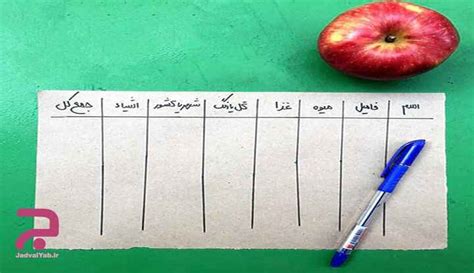 اسم فامیل میوه غذا گل یا رنگ شهر یا کشور اشیاء جمع کل
JadvalYab.ir